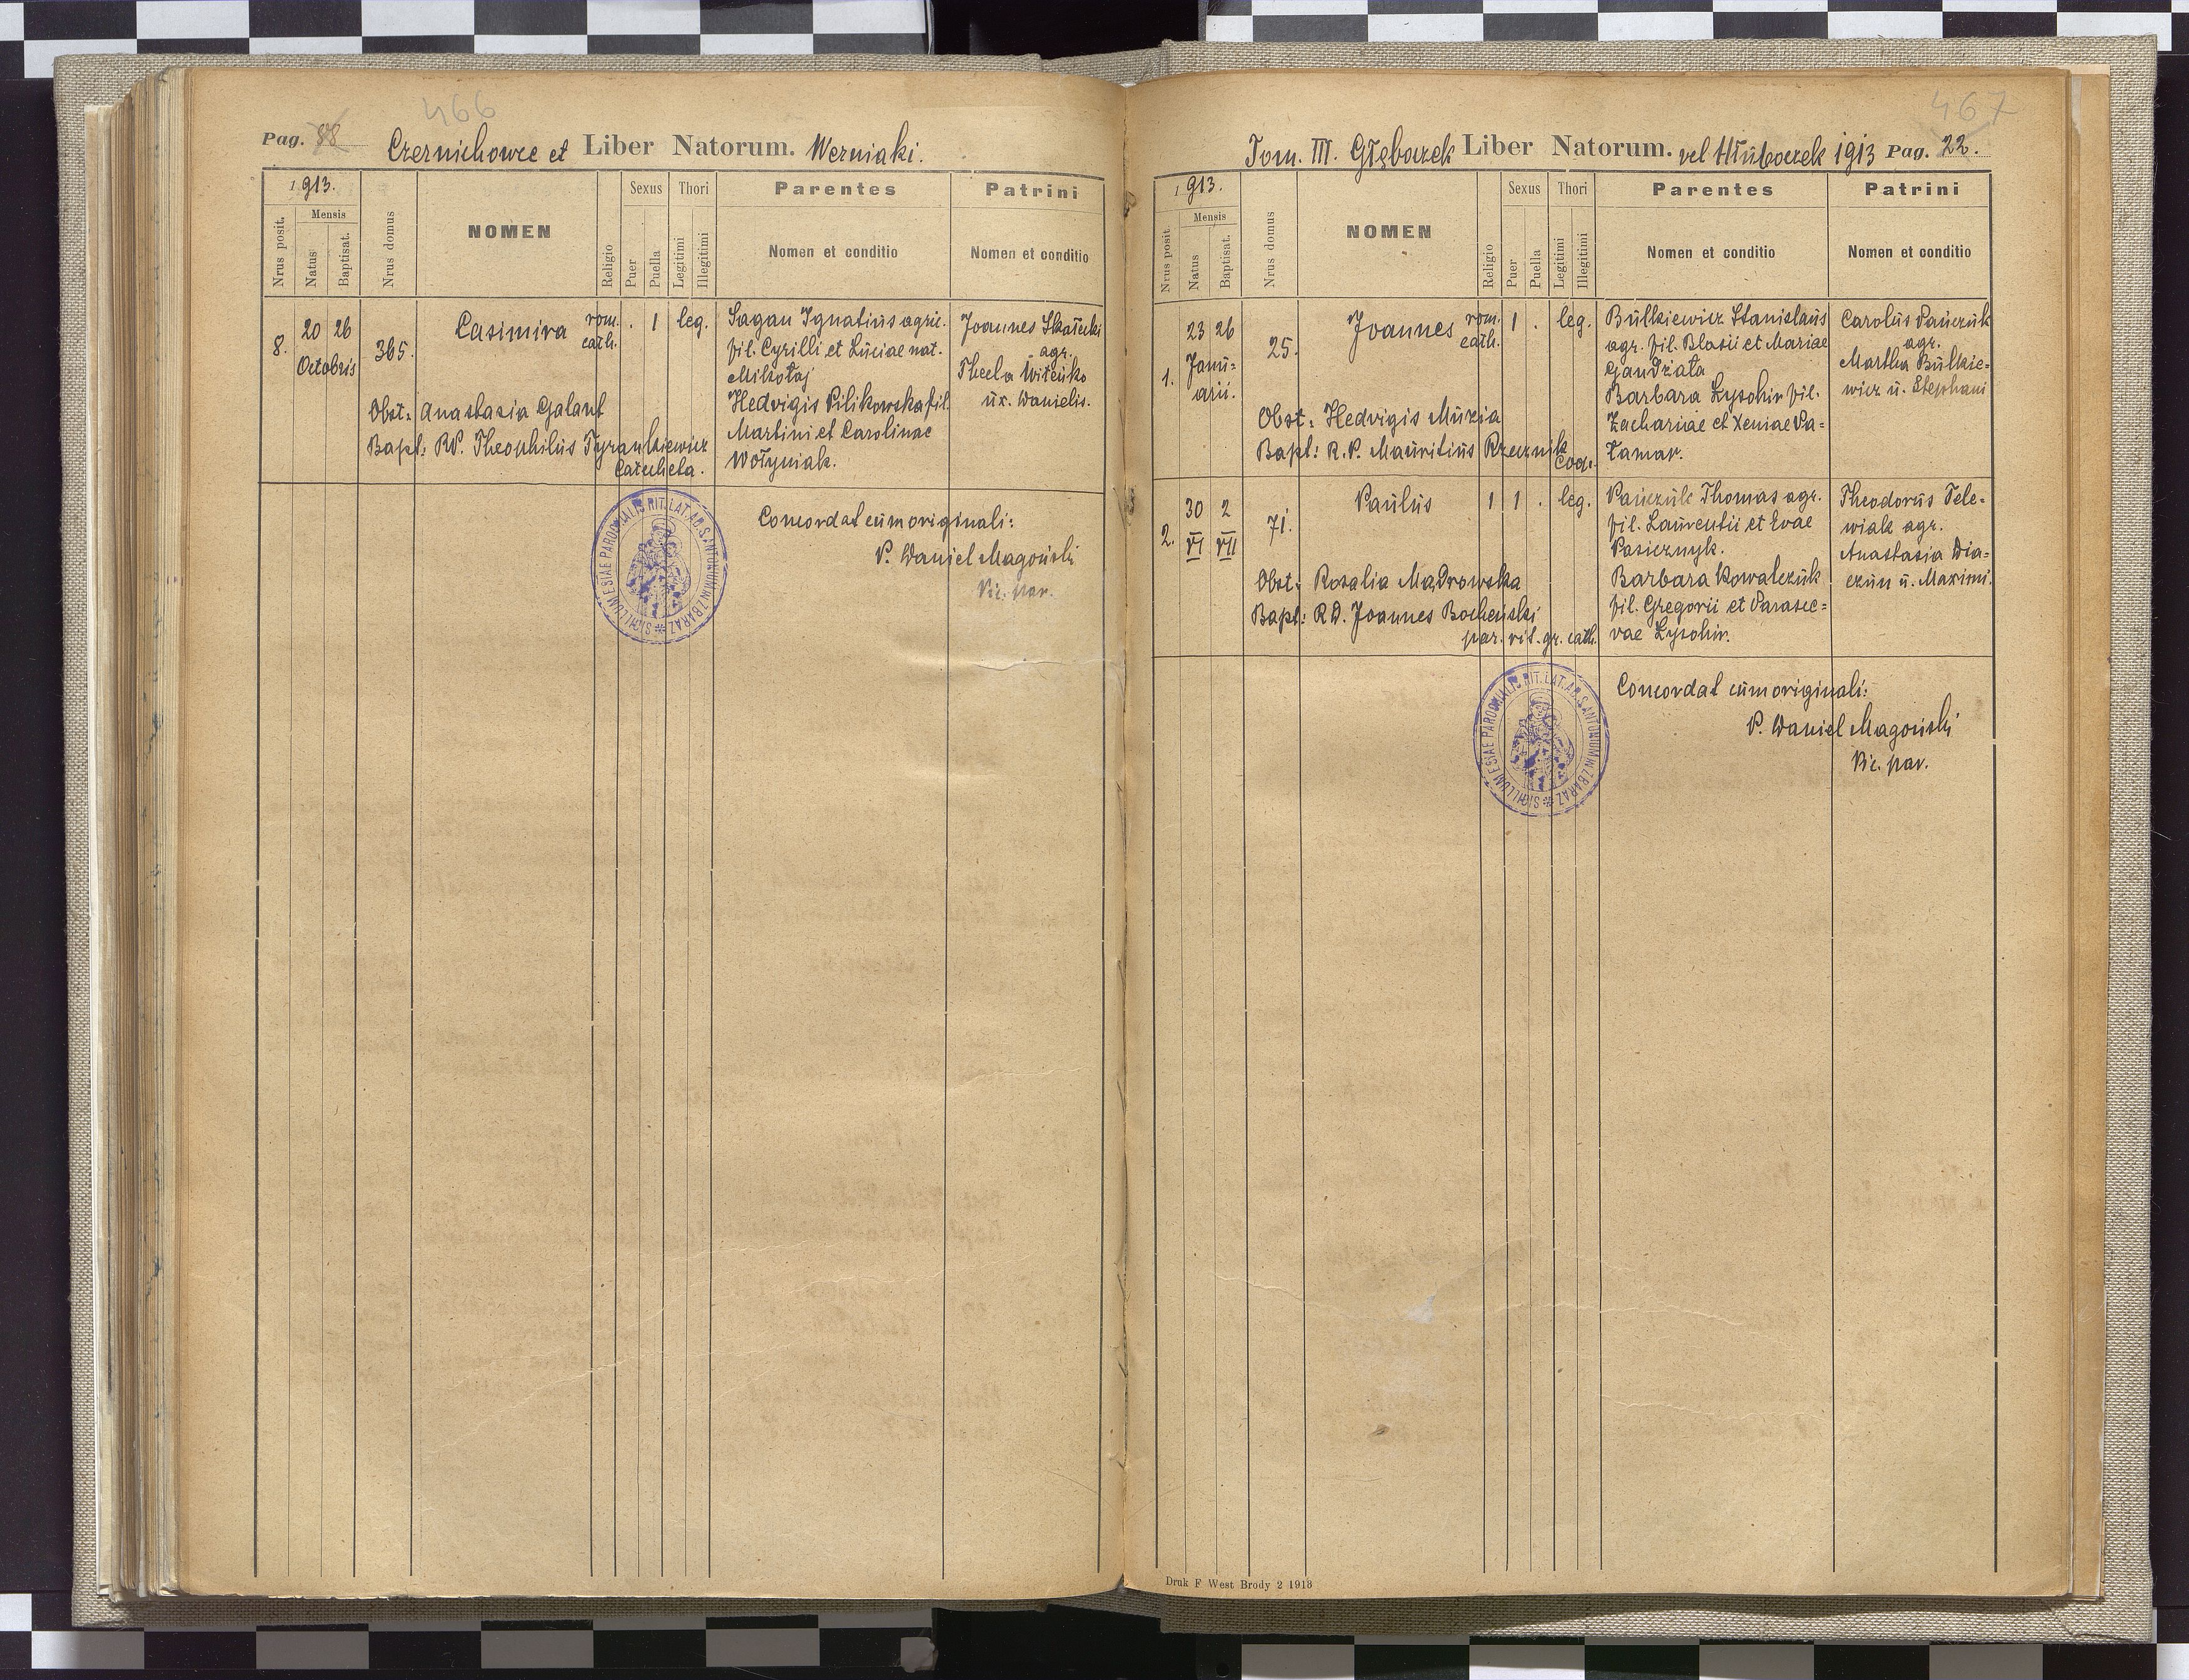 466
Pag. 88 Czernichowce et Liber Natorum. Werniaki.
1913. Sexus Thori Parentes Patrini
Nrus posit. Mensis Natus Baptisat. Nrus domus NOMEN Religio Puer Puella Legitimi Illegitimi Nomen et conditio Nomen et conditio
8. 20 26 Octobris 365. Casimira rom. cath. . 1 leg.
Sagan Ignatius agric.
fil. Cyrilli et Luciae nat.
Mikołaj
Hedvigis Pilikowska fil.
Martini et Carolinae
Wołyniak.
Joannes Skałecki
agr.
Thecla Witeńko
ux. Danielis.
Obst: Anastasia Galant
Bapt: RP. Theophilus Tyrankiewicz
Catecheta.
Concordat cum originali:
P. Daniel Magoński
Vic. par.
SIGILLUM ECCLESIAE PAROCHIALIS RIT. LAT. AD S. ANTONIUM IN ZBARAZ
467
Tom. III. Głęboczek Liber Natorum. vel Hłuboczek 1913 Pag. 22.
1913. Sexus Thori Parentes Patrini
Nrus posit. Mensis Natus Baptisat. Nrus domus NOMEN Religio Puer Puella Legitimi Illegitimi Nomen et conditio Nomen et conditio
1. 23 26 Janu=arii. 25. Joannes rom. cath. 1 . leg.
Bulkiewicz Stanislaus
agr. fil. Blasii et Mariae
Gandziała
Barbara Łysohir fil.
Zachariae et Xeniae Pa=
łamar.
Carolus Pańczuk
agr.
Martha Bulkie=
wicz u. Stephani
Obst: Hedvigis Muzia
Bapt: R.P. Mauritius Rzeznik
Coop.
2. 30 2 VI VII 71. Paulus 1 1 . leg.
Pańczuk Thomas agr.
fil. Laurentii et Evae
Pasicznyk.
Barbara Kowalczuk
fil. Gregorii et Parasce=
vae Łysohir.
Theodorus Tele=
wiak agr.
Anastasia Dia=
czun u. Maximi.
Obst: Rozalia Mądrowska
Bapt: RD. Joannes Bocheński
par. rit. gr. cath.
Concordat cum originali:
P. Daniel Magoński
Vic. par.
SIGILLUM ECCLESIAE PAROCHIALIS RIT. LAT. AD S. ANTONIUM IN ZBARAZ
Druk F West Brody 2 1913